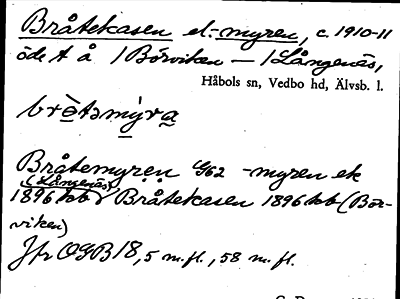 Bråtekasen el. -myren, c. 1910-11
ödet å 1 Börviken — 1 Långenäs,
Håbols sn, Vedbo hd, Älvsb. l.
brètəmýra
Bråtemyren G62 -myren ek
(Långenäs)
1896 hb Bråtekasen 1896 hb (Bör-
viken)
Jfr OGB 18, 5 m.fl., 58 m.fl.